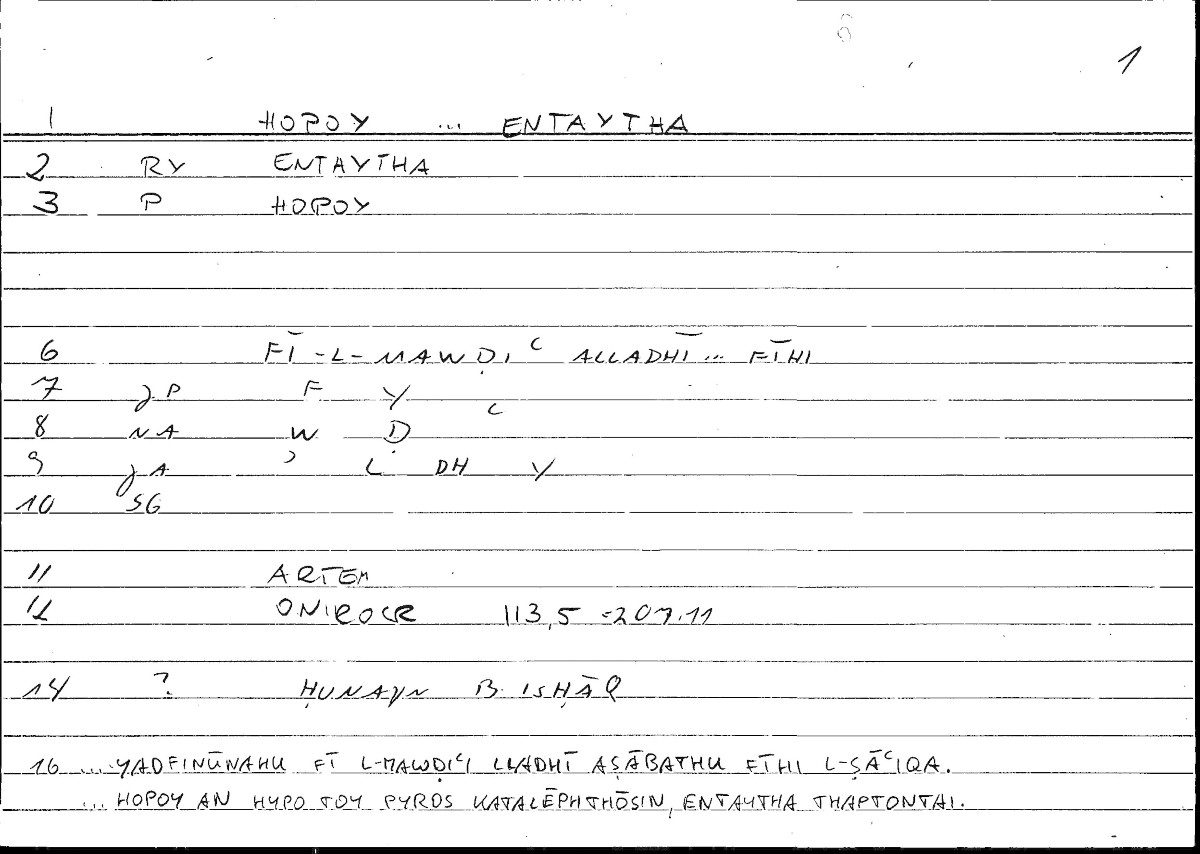 1
1 HOPOY ... ENTAYTHA
2 RY ENTAYTHA
3 P HOPOY
6 FĪ-L-MAWḌIʿ ALLADHĪ... FĪHI
7 JP F Y
8 NA W Ḍ ʿ
9 JA ʾ L DH Y
10 SG
11 ARTEM
12 ONIROCR 113,5 = 207.11
14 ? ḤUNAYN B. ISḤĀQ
16 ... YADFINŪNAHU FĪ L-MAWḌIʿI LLADHĪ AṢĀBATHU FĪHI L-ṢĀʿIQA.
... HOPOY AN HYPO TOY PYROS KATALĒPHTHŌSIN, ENTAYTHA THAPTONTAI.